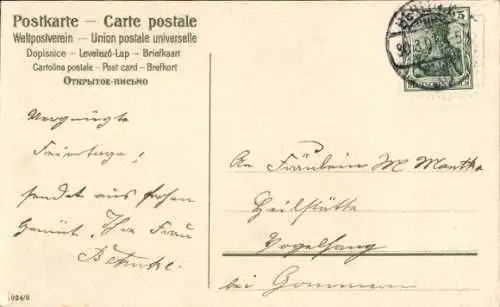 Postkarte – Carte postale
Weltpostverein – Union postale universelle
Dopisnice – Levelező-Lap – Briefkaart
Cartolina postale – Post card – Brefkort
Открытое-письмо
Vergnügte
Feiertage!
sendet aus frohem
Gemüt, Ihre Frau
An Fräulein M. Mantha
Heilstätte
Vogelsang
bei Gommern